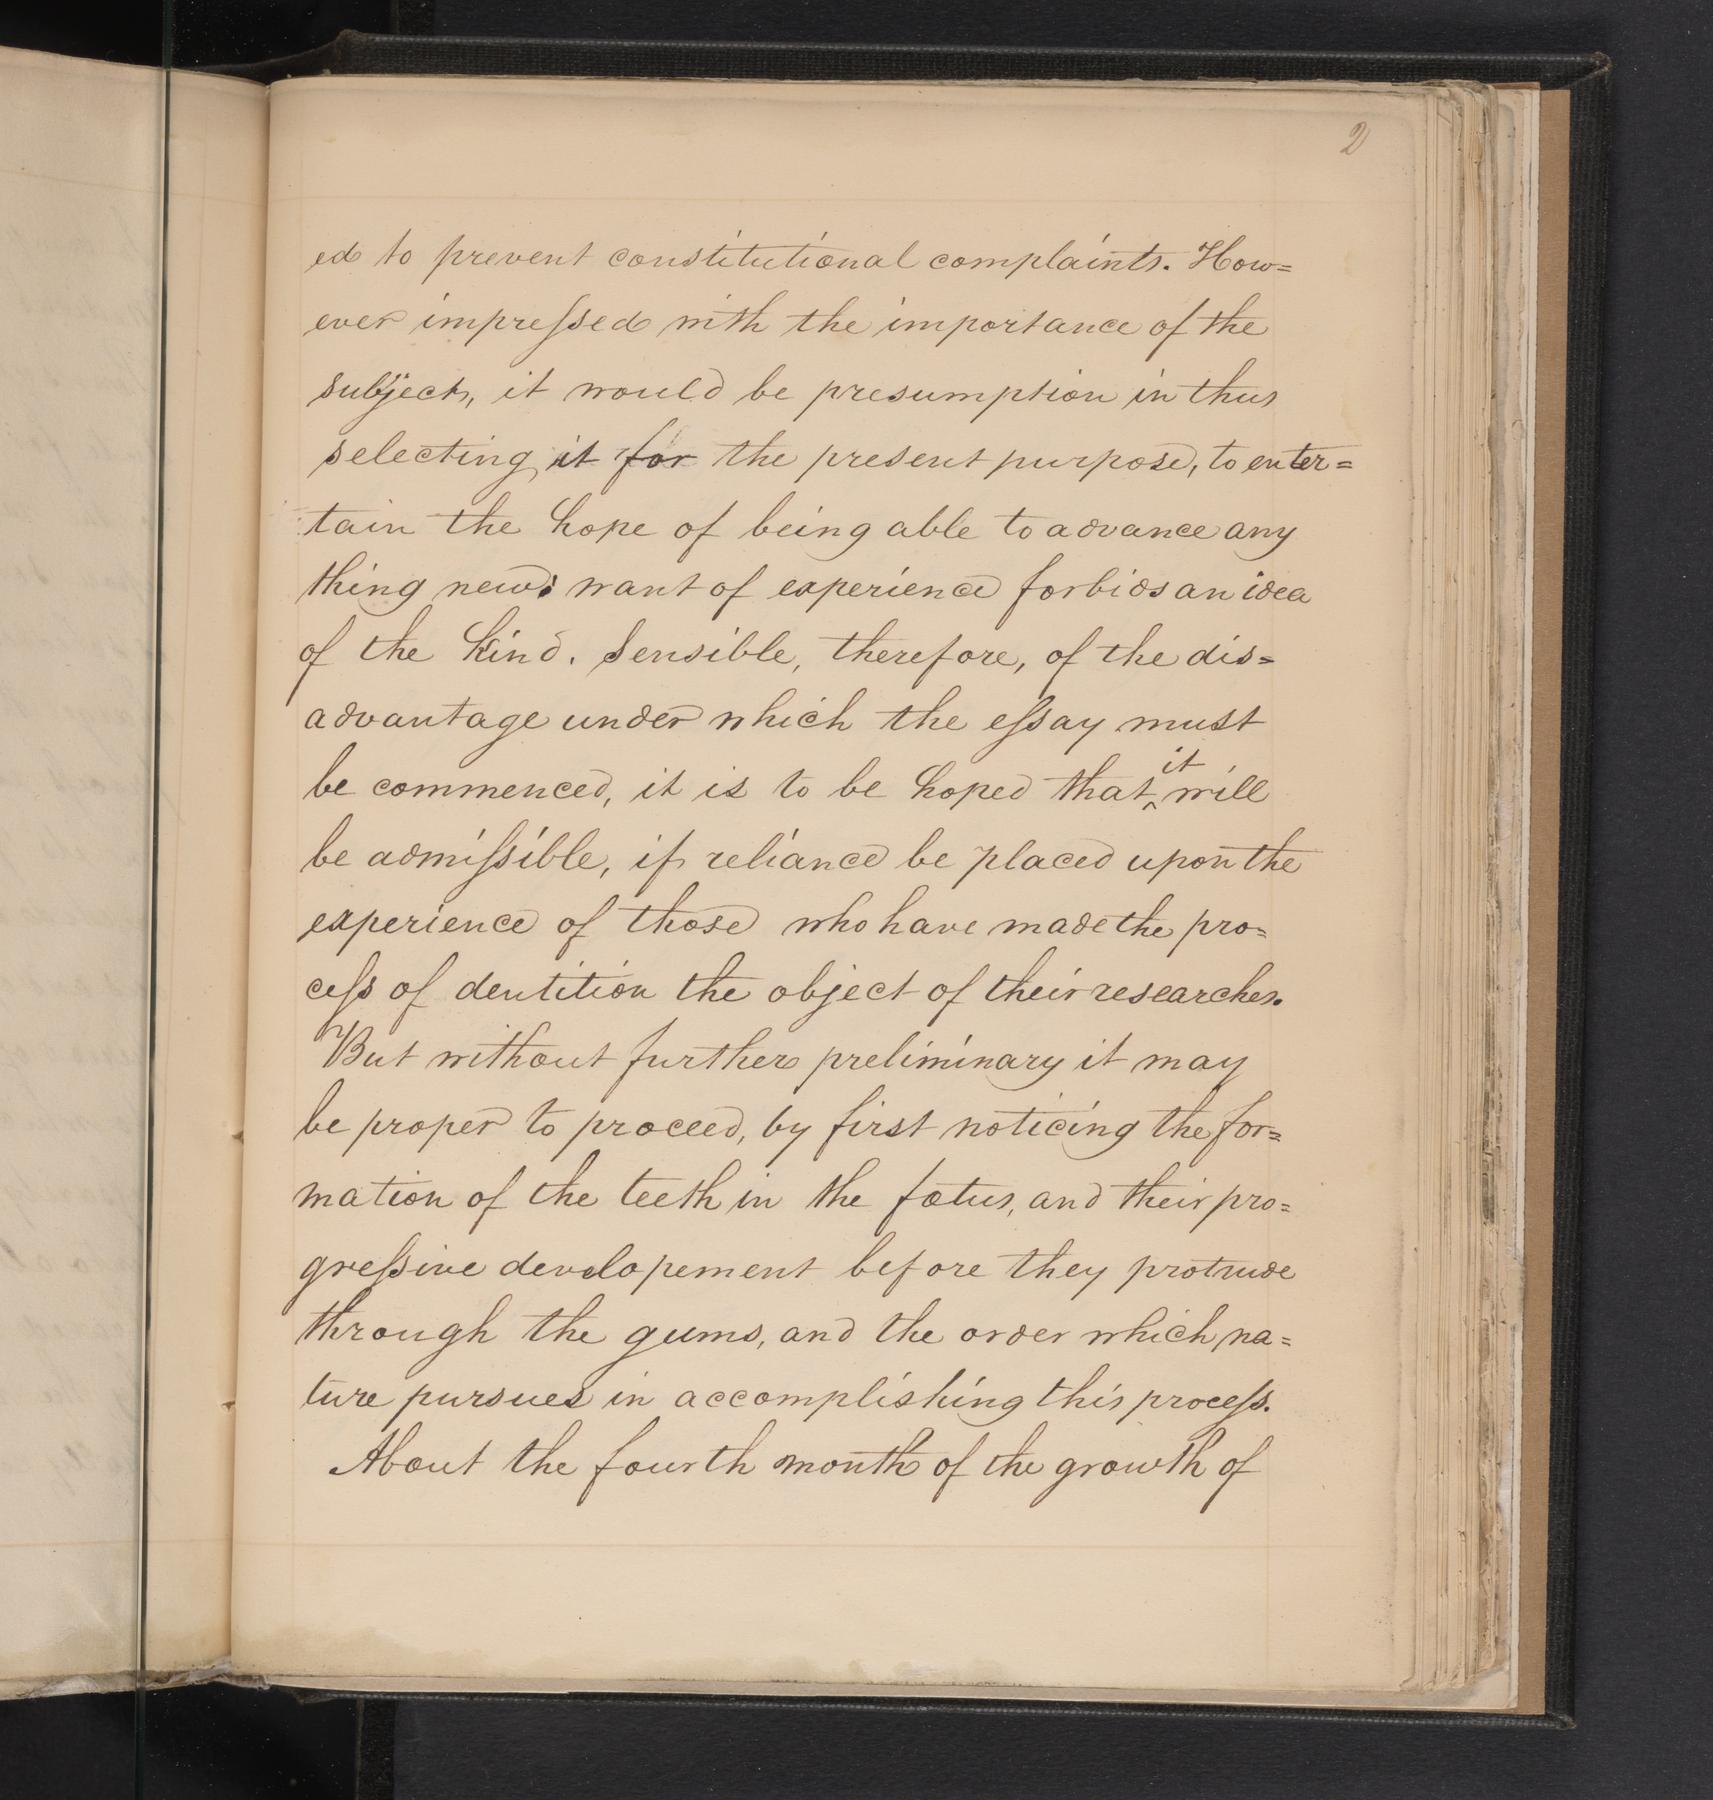 2
ed to prevent constitutional complaints. How=
ever impressed with the importance of the
subject, it would be presumption in thus
selecting it for the present purpose, to enter=
tain the hope of being able to advance any
thing new: want of experience forbids an idea
of the kind. Sensible, therefore, of the dis=
advantage under which the essay must
be commenced, it is to be hoped that it will
be admissible, if reliance be placed upon the
experience of those who have made the pro=
cess of dentition the object of their researches.
But without further preliminary it may
be proper to proceed, by first noticing the for=
mation of the teeth in the fœtus, and their pro=
gressive developement before they protrude
through the gums, and the order which na=
ture pursues in accomplishing this process.
About the fourth month of the growth of